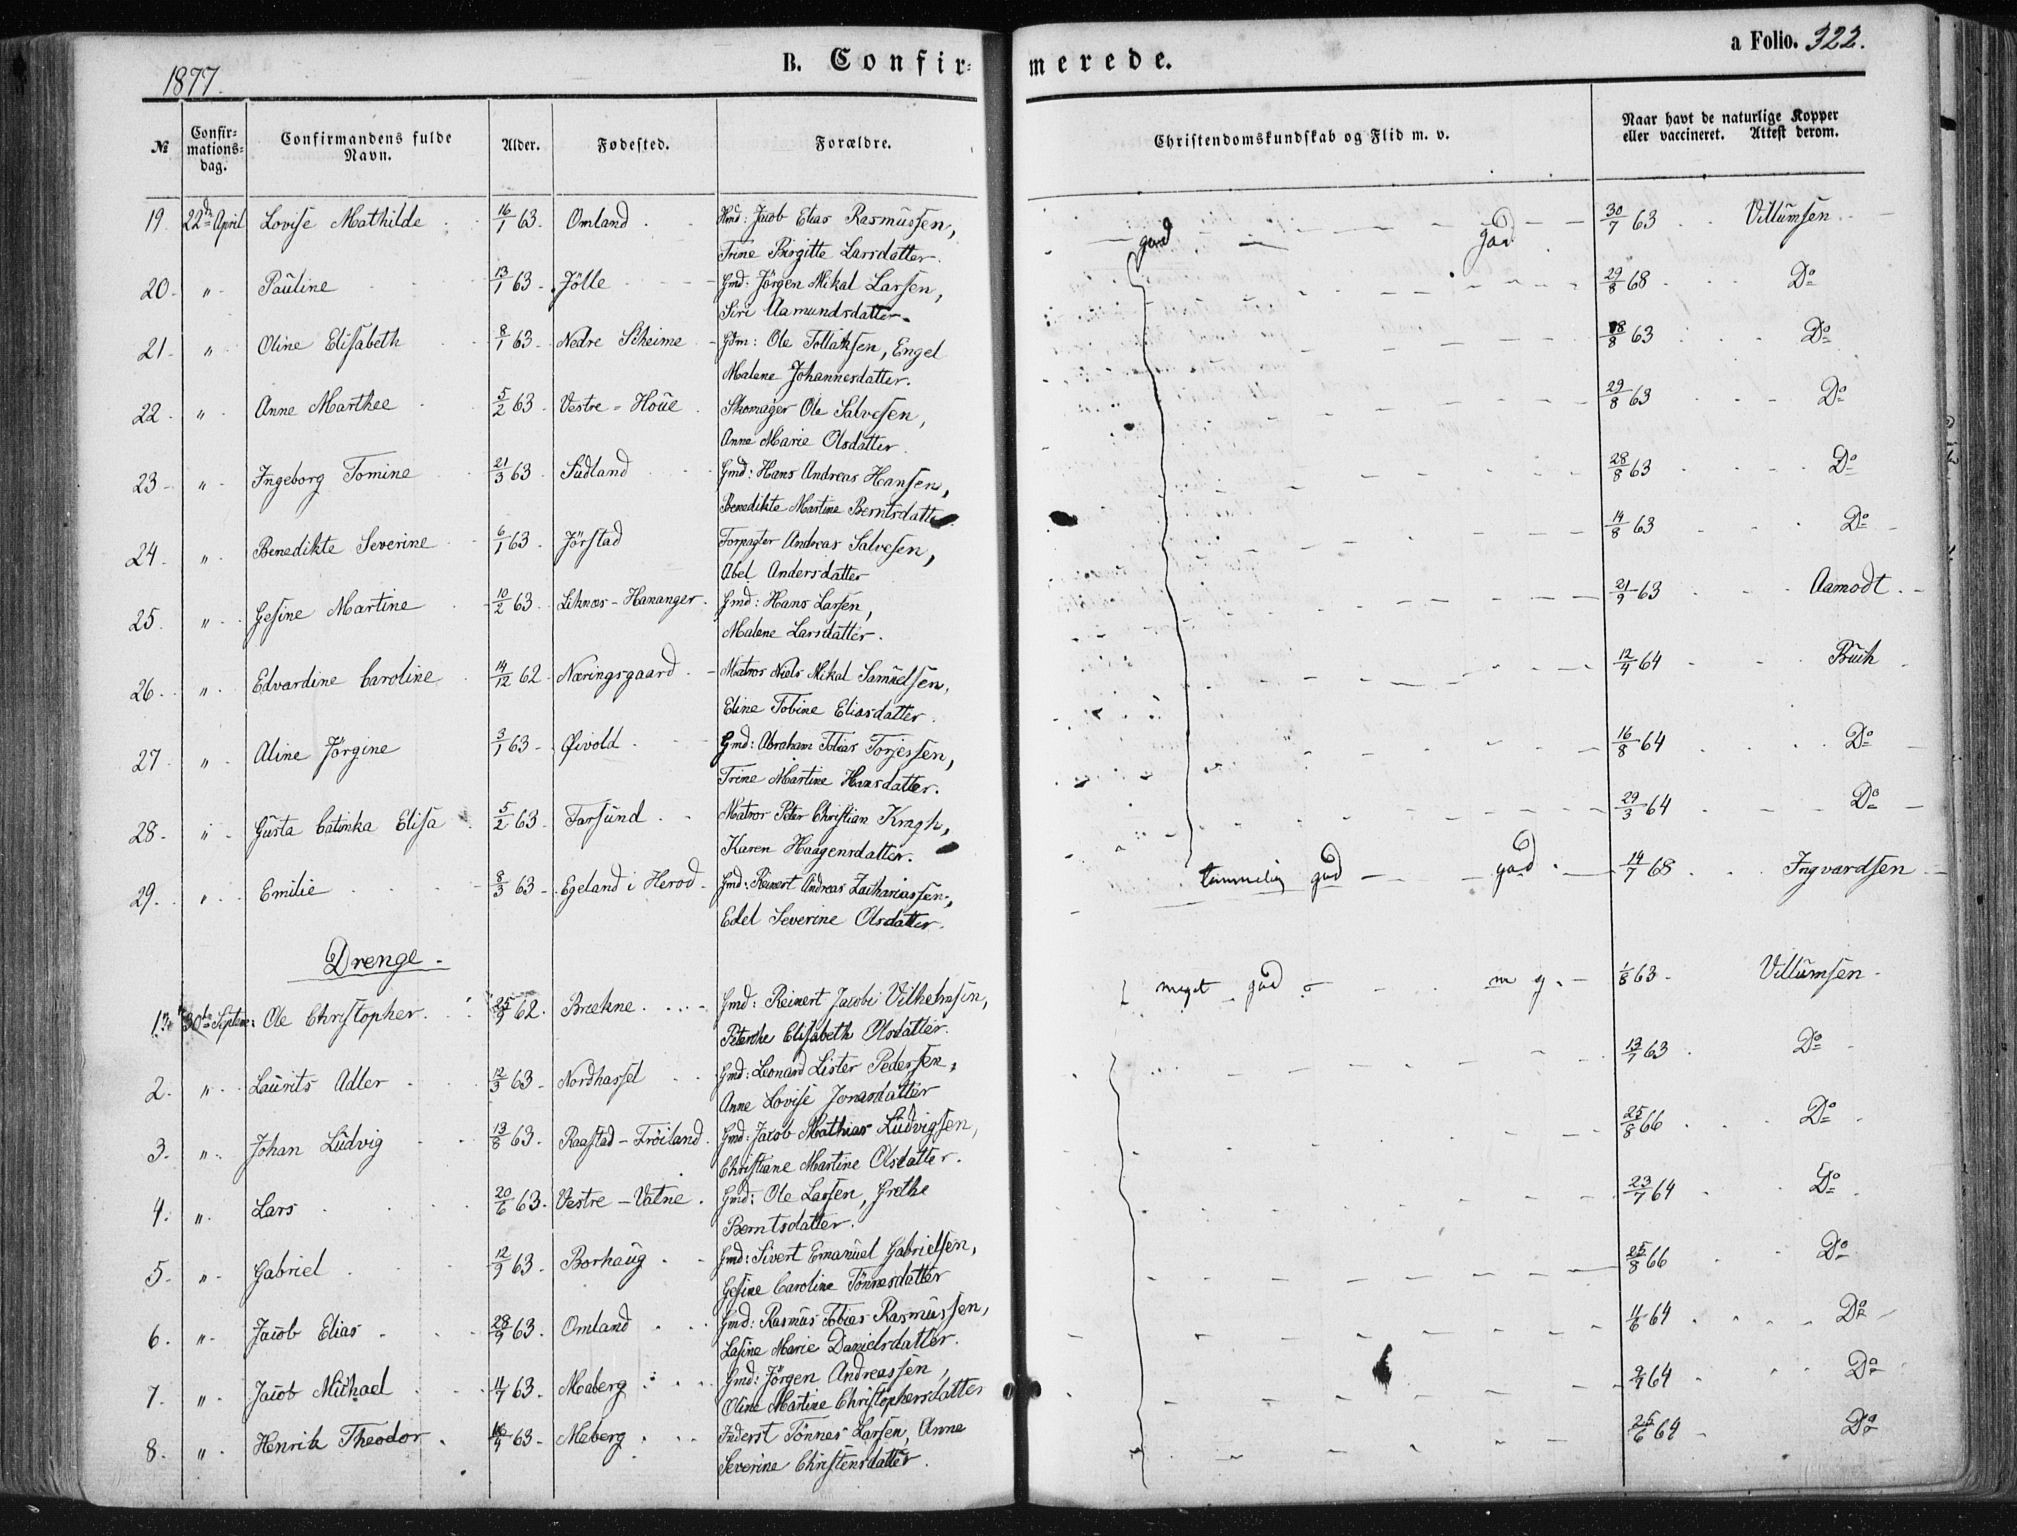 1877.
B. Confir-
merede.
a Folio. 322.
№ Confirmationsdag. Confirmandens fulde Navn. Alder. Fødested. Forældre. Christendomskundskab og Flid m. v. Naar havt de naturlige Kopper eller vaccineret. Attest derom.
19. 22de April Lovise Mathilde 16/1 63. Omland Gmd: Jacob Elias Rasmussen, god god 30/7 63 Villumsen
Trine Birgitte Larsdatter.
20. " Pauline 13/1 63. Jölle Gmd: Jörgen Mikal Larsen, 29/8 68 Do
Siri Aamundsdatter.
21. " Oline Elisabeth 8/1 63. Nedre Skeime Gdm: Ole Tollaksen, Engel 18/8 63 Do
Malene Johannesdatter.
22. " Anne Marthee 5/2 63. Vestre-Houe Skomager Ole Salvesen, 29/8 63 Do
Anne Marie Olsdatter.
23. " Ingeborg Tomine 21/3 63. Sudland Gmd: Hans Andreas Hansen, 28/8 63 Do
Benedikte Martine Berntsdatter
24. " Benedikte Severine 6/1 63. Jörstad Forpagter Andreas Salvesen, 14/8 63 Do
Abel Andersdatter
25. " Gesine Martine 10/2 63. Liknæs-Hananger. Gmd: Hans Larsen, 21/9 63 Aamodt.
Malene Larsdatter.
26. " Edvardine Caroline 14/12 62. Næringsgaard. Matros Niels Mikal Samuelsen, 12/4 64 Buch
Eline Tobine Eliasdatter.
27. " Aline Jörgine 3/1 63. Øivold. Gmd: Abraham Tobias Torjessen, 16/8 64 Do
Trine Martine Hansdatter.
28. " Gusta Catinka Elisa 5/2 63. Farsund Matros Peter Christian Kragh, 29/3 64 Do
Karen Haagensdatter.
29. " Emilie 8/3 63. Egeland i Herod. Gmd: Reinert Andreas Zachariassen, temmelig god god. 14/7 68 Ingvardsen
Edel Severine Olsdatter.
Drenge.
1. 30te Septem: Ole Christopher. 25/9 62. Brekne Gmd: Reinert Jacobi Vilhelmsen, meget god m g. 1/8 63. Villumsen
Peterke Elisabeth Olsdatter.
2. " Laurits Adler 12/3 63. Nordhassel Gmd: Leonard Lister Pedersen, 13/7 63 Do
Anne Lovise Jonasdatter
3. " Johan Ludvig 13/8 63. Raastad-Tröiland. Gmd: Jacob Mathias Ludvigsen, 25/8 66 Do
Christiane Martine Olsdatter.
4. " Lars 20/6 63. Vestre-Vatne. Gmd: Ole Larsen, Grethe 23/7 64 Do
Berntsdatter.
5. " Gabriel 12/9 63. Borhaug Gmd: Sivert Emanuel Gabrielsen, 25/8 66 Do
Gesine Caroline Tönnesdatter
6. " Jacob Elias 28/9 63. Omland Gmd: Rasmus Tobias Rasmussen, 11/6 64 Do
Lasine Marie Danielsdatter.
7. " Jacob Michael 11/7 63. Meberg Gmd: Jörgen Andreassen, 64 Do
Oline Martine Christophersdatter
8. " Henrik Theodor. 63. Meberg Inderst Tönnes Larsen, Anne 25/6 64 Do
Severine Christensdatter.